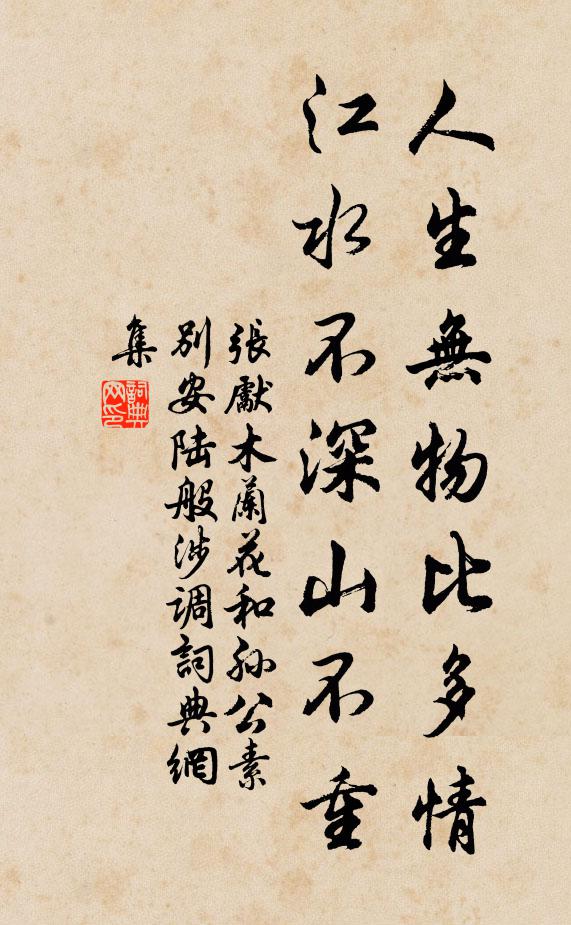 人生無物比多情
江水不深山不重
張獻木蘭花和孙公素
别安陆般涉调詞典網
集
詞典
网印